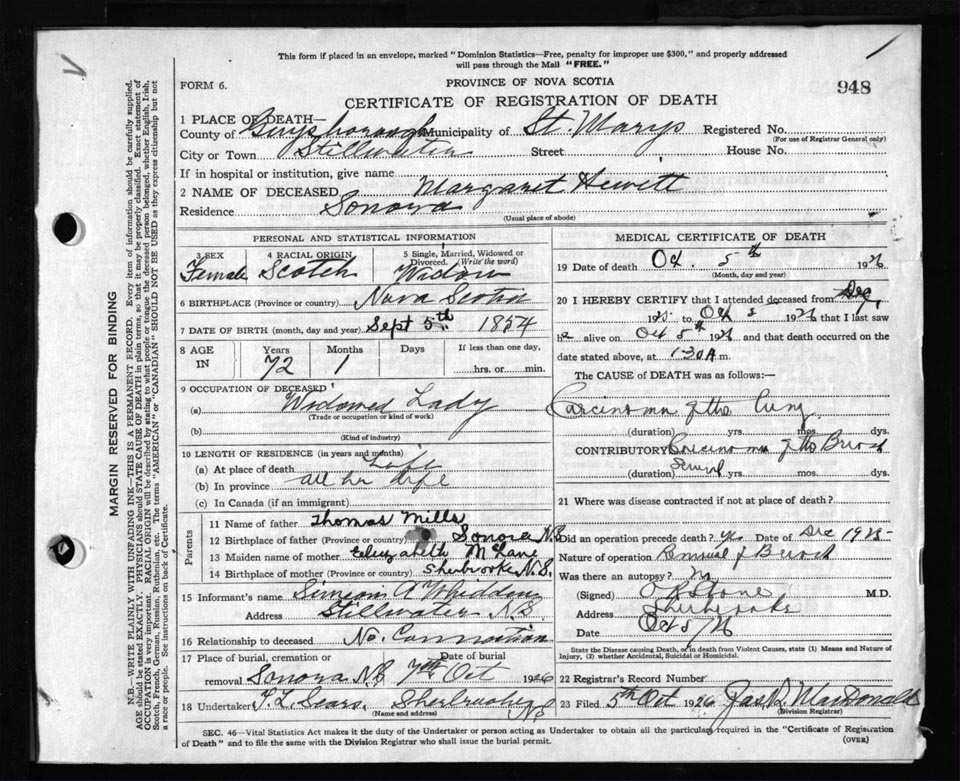 This form if placed in an envelope, marked "Dominion Statistics—Free, penalty for improper use $300," and properly addressed
will pass through the Mail "FREE."
FORM 6.
PROVINCE OF NOVA SCOTIA
948
CERTIFICATE OF REGISTRATION OF DEATH
1 PLACE OF DEATH—
County of Guysborough Municipality of St. Marys Registered No.
(For use of Registrar General only)
City or Town Stillwater Street House No.
If in hospital or institution, give name
2 NAME OF DECEASED Margaret Hewitt
Residence Sonora
(Usual place of abode)
PERSONAL AND STATISTICAL INFORMATION
3 SEX 4 RACIAL ORIGIN 5 Single, Married, Widowed or
Divorced. (Write the word)
Female Scotch Widow
6 BIRTHPLACE (Province or country) Nova Scotia
7 DATE OF BIRTH (month, day and year) Sept 5th 1854
8 AGE IN Years Months Days If less than one day,
72 1 hrs. or min.
9 OCCUPATION OF DECEASED
(a) Widowed Lady
(Trade or occupation or kind of work)
(b)
(Kind of industry)
10 LENGTH OF RESIDENCE (in years and months)
(a) At place of death Life
(b) In province all her life
(c) In Canada (if an immigrant)
Parents
11 Name of father Thomas Mills
12 Birthplace of father (Province or country) Sonora N.S.
13 Maiden name of mother Elizabeth McLane
14 Birthplace of mother (Province or country) Sherbrooke N.S.
15 Informant's name Simeon A Whidden
Address Stillwater N.S
16 Relationship to deceased No. Connection
17 Place of burial, cremation or Date of burial
removal Sonora N.S 7th Oct 1926
18 Undertaker T. L. Sears. Sherbrooke NS
(Name and address)
MEDICAL CERTIFICATE OF DEATH
19 Date of death Oct. 5th 1926
(Month, day and year)
20 I HEREBY CERTIFY that I attended deceased from Dec,
1925 to Oct 5 1926 that I last saw
her alive on Oct 5th 1926 and that death occurred on the
date stated above, at 1.30 A m.
The CAUSE of DEATH was as follows:—
Carcinoma of the lung
(duration) yrs. mos. dys.
CONTRIBUTORY Carcinoma of the Breast
(duration) Several yrs. mos. dys.
21 Where was disease contracted if not at place of death?
Did an operation precede death? Yes Date of Dec 1925
Nature of operation Removal of Breast
Was there an autopsy? No
(Signed) Stone M.D.
Address Sherbrooke
Date Oct 5/26
State the Disease causing Death, or in death from Violent Causes, state (1) Means and Nature of
Injury, (2) whether Accidental, Suicidal or Homicidal.
22 Registrar's Record Number
23 Filed 5th Oct 1926 Jas. D. MacDonald
(Division Registrar)
SEC. 46—Vital Statistics Act makes it the duty of the Undertaker or person acting as Undertaker to obtain all the particulars required in the "Certificate of Registration
of Death" and to file the same with the Division Registrar who shall issue the burial permit.
(OVER)
MARGIN RESERVED FOR BINDING
N.B.—WRITE PLAINLY WITH UNFADING INK—THIS IS A PERMANENT RECORD. Every item of information should be carefully supplied.
AGE should be stated EXACTLY. PHYSICIANS should STATE CAUSE OF DEATH in plain terms, so that it may be properly classified. Exact statement of
OCCUPATION is very important. RACIAL ORIGIN will be described by stating to what people or tongue the deceased person belonged, whether English, Irish,
Scotch, French, German, Russian, Ruthenian, etc. The terms "AMERICAN" or "CANADIAN" SHOULD NOT BE USED as they express citizenship but not
a race or people. See instructions on back of Certificate.